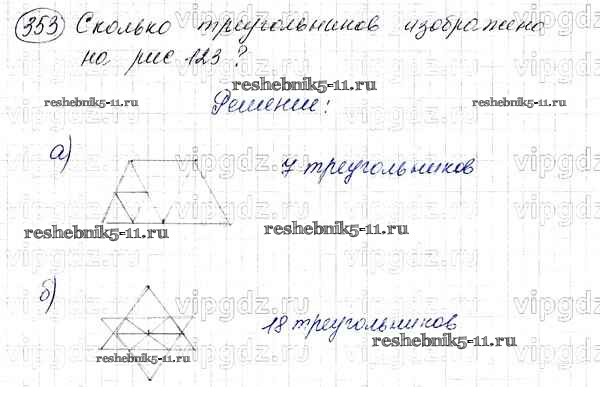 353 Сколько треугольников изображено
на рис 123?
reshebnik5-11.ru
reshebnik5-11.ru
reshebnik5-11.ru
Решение:
а)
7 треугольников
reshebnik5-11.ru
reshebnik5-11.ru
б)
18 треугольников
reshebnik5-11.ru
reshebnik5-11.ru
vipgdz.ru